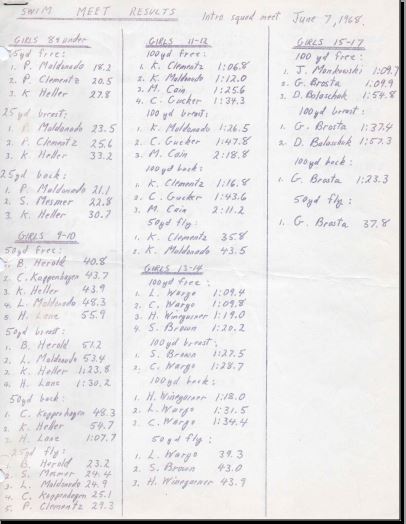 SWIM MEET RESULTS Intra squad meet June 7, 1968.
GIRLS 8 & under
25yd free:
1. P. Maldonado 18.2
2. P. Clementz 20.5
3. K Heller 27.8
25yd breast:
1. P. Maldonado 23.5
2. P. Clementz 25.6
3. K. Heller 33.2
25yd back:
1. P. Maldonado 21.1
2. S. Mesmer 22.8
3. K. Heller 30.7
GIRLS 9-10
50yd free:
1. B. Herold 40.8
2. C. Koppenhagen 43.7
3. K. Heller 43.9
4. L. Maldonado 48.3
5. H. Lane 55.9
50yd breast:
1. B. Herold 51.2
2. L. Maldonado 53.4
2. K. Heller 1:23.8
4. H. Lane 1:30.2
50yd back:
1. C. Koppenhagen 48.3
2. K. Heller 54.7
3. H. Lane 1:07.7
25yd fly:
1. B. Herold 23.2
2. S. Mesmer 24.4
3. L. Maldonado 24.9
4. C. Koppenhagen 25.1
5. P. Clementz 29.3
GIRLS 11-12
100yd free:
1. K. Clementz 1:06.8
2. K. Maldonado 1:12.0
3. M. Cain 1:25.6
4. C. Gucker 1:34.3
100yd breast:
1. K. Maldonado 1:26.5
2. C. Gucker 1:47.8
3. M. Cain 2:18.8
100yd back:
1. K. Clementz 1:16.8
2. C. Gucker 1:43.6
3. M. Cain 2:11.2
50yd fly:
1. K. Clementz 35.8
2. K. Maldonado 43.5
GIRLS 13-14
100yd free:
1. L. Wargo 1:09.4
2. C. Wargo 1:09.8
3. H. Winegarner 1:19.0
4. S. Brown 1:20.2
100yd breast:
1. S. Brown 1:27.5
2. C. Wargo 1:28.7
100yd back:
1. H. Winegarner 1:18.0
2. L. Wargo 1:31.5
2. C. Wargo 1:34.4
50yd fly:
1. L. Wargo 39.3
2. S. Brown 43.0
3. H. Winegarner 43.9
GIRLS 15-17
100yd free:
1. J. Mankowski 1:09.7
2. G. Brosta 1:09.9
3. D. Bolaschak 1:54.8
100yd breast:
1. G. Brosta 1:37.4
2. D. Bolaschak 1:57.3
100yd back:
1. G. Brosta 1:23.3
50yd fly:
1. G. Brosta 37.8